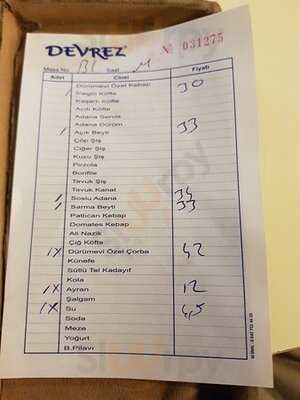 DEVREZ
№ 031275
Masa No BL Saat
Adet Cinsi Fiyatı
Dürümevi Özel Kebap 30
Inegöl Köfte
Kaşarlı Köfte
Acılı Köfte
Adana Servis
Adana Dürüm 33
Açık Beyti
Çöp Şiş
Ciğer Şiş
Kuzu Şiş
Pirzola
Bonfile
Tavuk Şiş
Tavuk Kanat
Soslu Adana 34
Sarma Beyti 33
Patlıcan Kebap
Domates Kebap
Ali Nazik
Çiğ Köfte
1X Dürümevi Özel Çorba 42
Künefe
Sütlü Tel Kadayıf
Kola
1X Ayran 12
Şalgam
1X Su 4,5
Soda
Meze
Yoğurt
B.Pilavı